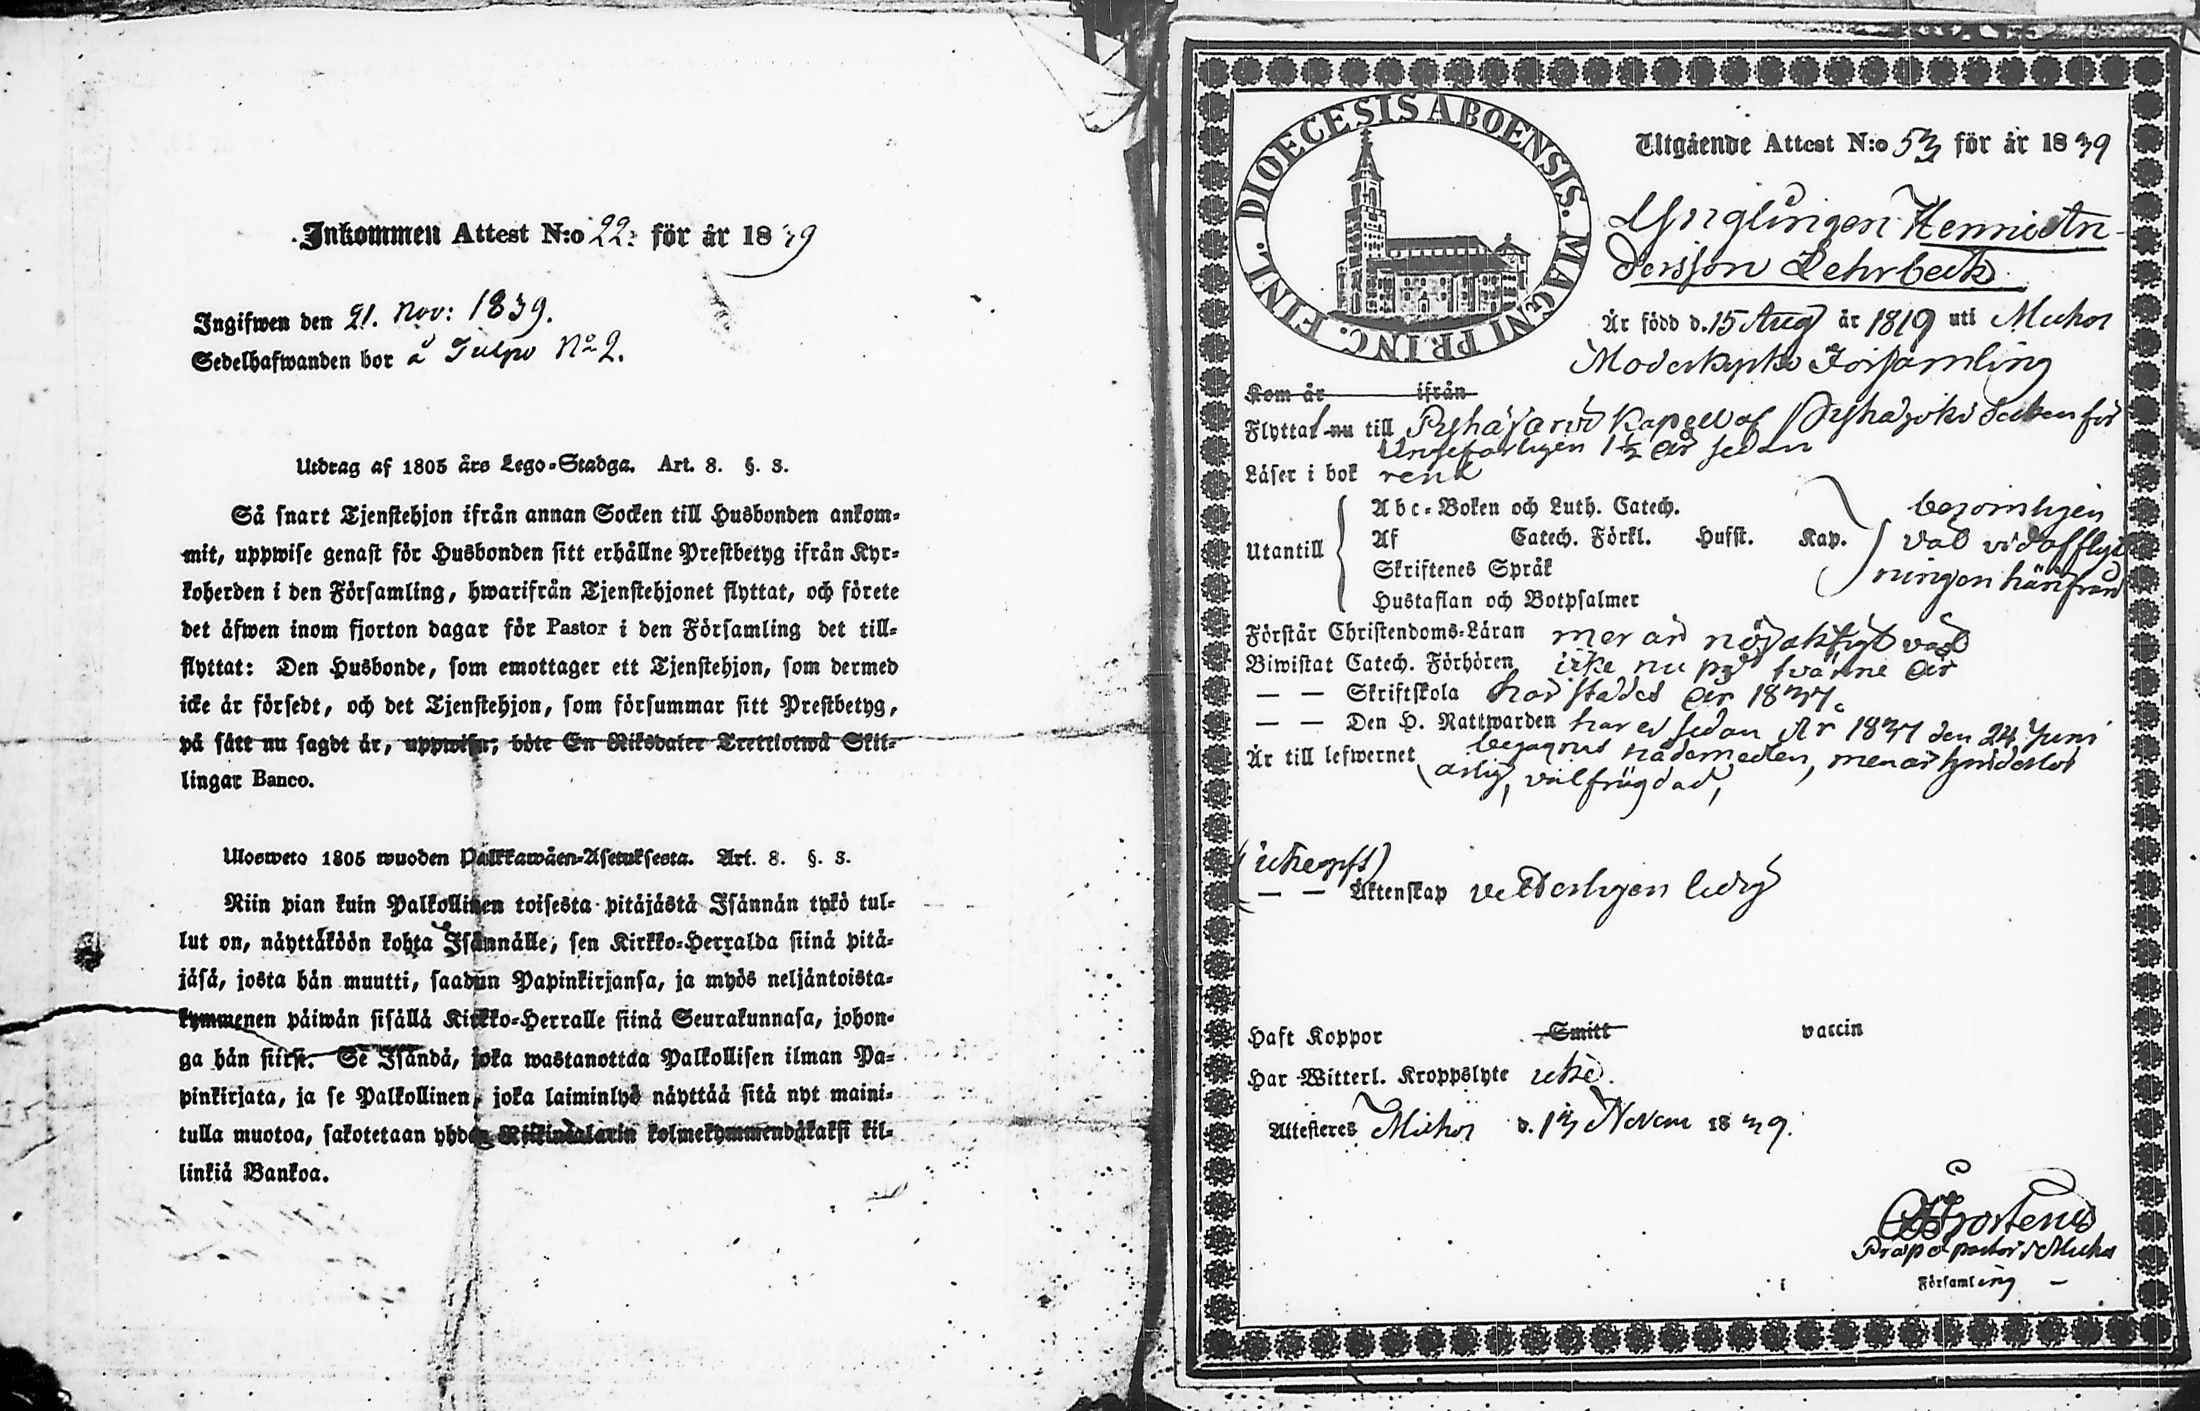 Inkommen Attest N:o 22. för år 1839
Ingifwen den 21. Nov: 1839.
Sedelhafwanden bor å Tulpo No 2.
Utdrag af 1805 års Lego-Stadga. Art. 8. §. 3.
Så snart Tjenstehjon ifrån annan Socken till Husbonden ankom-
mit, uppwise genast för Husbonden sitt erhållne Prestbetyg ifrån Kyr-
koherden i den Församling, hwarifrån Tjenstehjonet flyttat, och förete
det äfwen inom fjorton dagar för Pastor i den Församling det till-
flyttat: Den Husbonde, som emottager ett Tjenstehjon, som dermed
icke är försedt, och det Tjenstehjon, som försummar sitt Prestbetyg,
på sätt nu sagdt är, uppwisa, böte En Riksdaler Trettiotwå Skil-
lingar Banco.
Ulosweto 1805 wuoden Palkkawäen-Asetuksesta. Art. 8. §. 3.
Niin pian kuin Palkollinen toisesta pitäjästä Isännän tykö tul-
lut on, näyttäköön kohta Isännälle, sen Kirkko-Herralda siinä pitä-
jäsä, josta hän muutti, saadun Papinkirjansa, ja myös neljäntoista-
kymmenen päiwän sisällä Kirkko-Herralle siinä Seurakunnasa, johon-
ga hän siirsi. Se Isändä, joka wastanottaa Palkollisen ilman Pa-
pinkirjata, ja se Palkollinen, joka laiminlyö näyttää sitä nyt maini-
tulla muotoa, sakotetaan yhden Riikindalarin kolmekymmendäkaksi kil-
linkiä Bankoa.
DIOECESIS ABOENSIS. MAGNI PRINC. FINL.
Utgående Attest N:o 53 för år 1839
Ynglingen Henric An-
dersson Lehrbeck
Är född d. 15 Aug år 1819 uti Muhos
Moderkyrko Församling
Kom år ifrån
Flyttat nu till Pyhäjärvi Kapell af Pyhäjoki Socken för
ungefärligen 1½ år sedan
Läser i bok rent
Abc-Boken och Luth. Catech.
Utantill Af Catech. Förkl. Hufst. Kap.
Skriftenes Språk
Hustaflan och Botpsalmer
väl vid afflytt
ningen härifrån
Förstår Christendoms-Läran mer än nöjaktigt väl
Biwistat Catech. Förhören icke nu på tvänne år
— — Skriftskola har stadet år 1837.
— — Den H. Nattwarden har ej sedan År 1837 den 24 Juni
begagnat nådemedlen, men är
Är till lefwernet ärlig, välfrägdad,
— — Äktenskap vetterligen ledig
Haft Koppor Smitt vaccin
Har Witterl. Kroppslyte icke.
Attesteras Muhos d. 13 Novem 1839.
Prap o pastor i Muhos
Församling